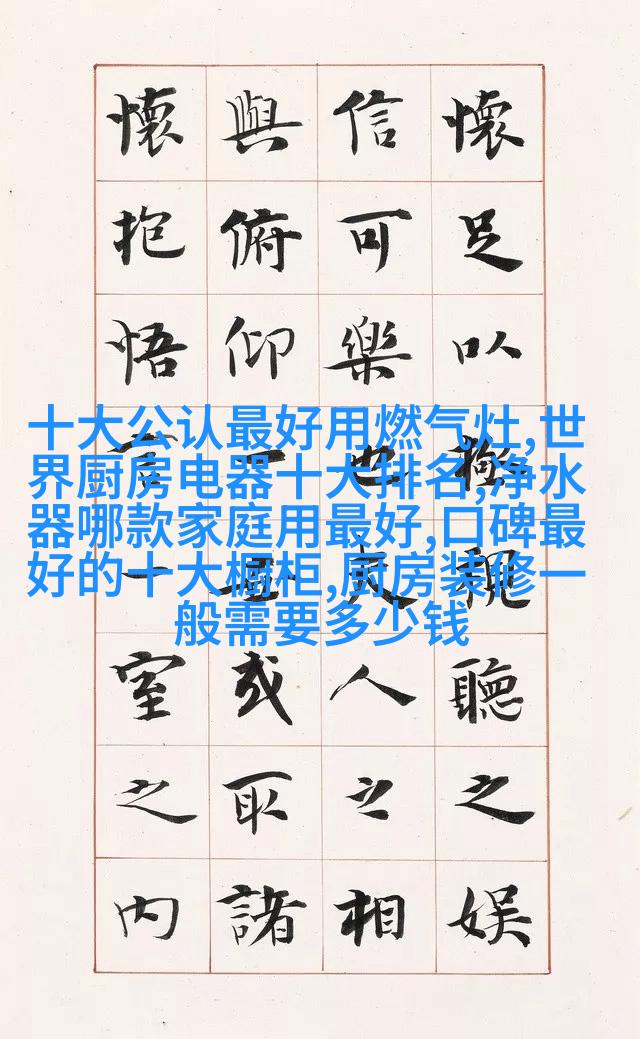 懷足以極視聽之娛
信可樂也夫人之相
與俯仰一世或取諸
懷抱悟言一室之內
十大公认最好用燃气灶,世
界厨房电器十大排名,净水
器哪款家庭用最好,口碑最
好的十大橱柜,厨房装修一
般需要多少钱